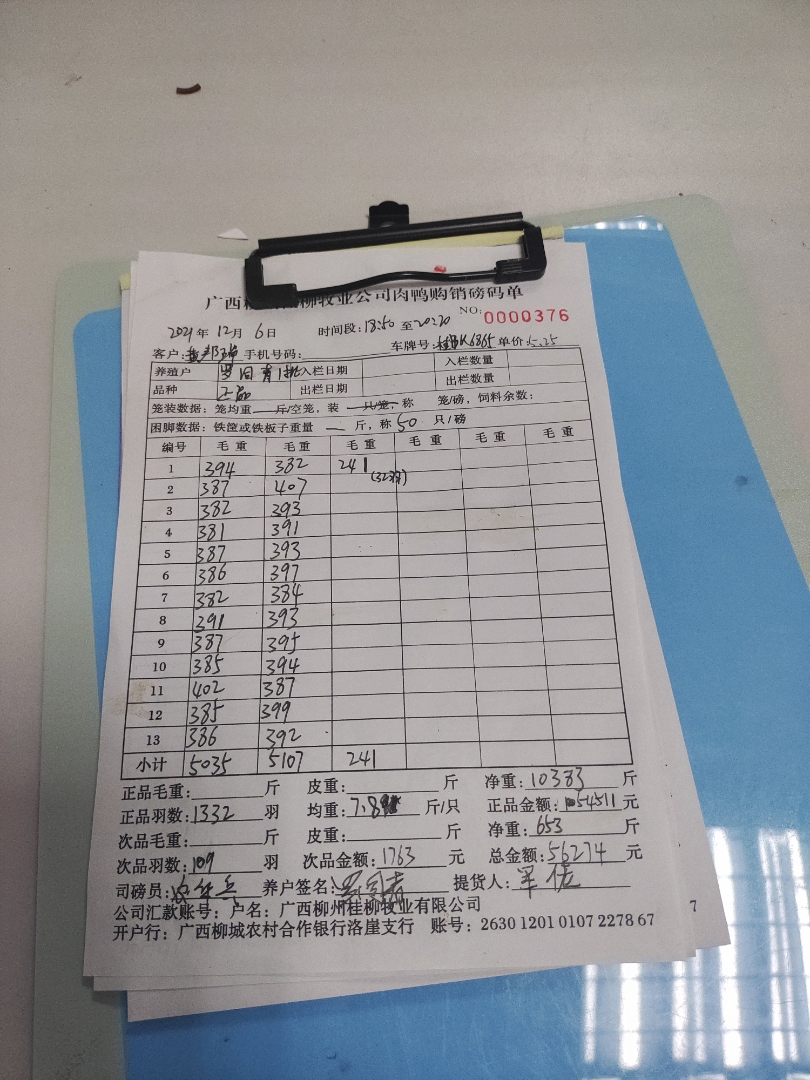 广西柳牧业公司肉鸭购销磅码单
NO: 0000376
2021年 12月 6日 时间段: 18:50 至 20:20
客户: 手机号码: 车牌号: K6865 单价: 5.25
养殖户 罗同青1批 入栏日期 入栏数量
品种 正品 出栏日期 出栏数量
笼装数据: 笼均重 — 斤/空笼, 装 — 只/笼, 称 笼/磅, 饲料余数:
困脚数据: 铁筐或铁板子重量 — 斤, 称 50 只/磅
编号 毛重 毛重 毛重 毛重 毛重 毛重
1 394 382 241 (32羽)
2 387 407
3 382 393
4 381 391
5 387 393
6 386 397
7 382 384
8 391 393
9 387 395
10 385 394
11 402 387
12 385 399
13 386 392
小计 5035 5107 241
正品毛重: 斤 皮重: 斤 净重: 10383 斤
正品羽数: 1332 羽 均重: 斤/只 正品金额: 54511 元
次品毛重: 斤 皮重: 斤 净重: 653 斤
次品羽数: 109 羽 次品金额: 1763 元 总金额: 56274 元
司磅员: 养户签名: 罗同青 提货人:
公司汇款账号: 户名: 广西柳州桂柳牧业有限公司
开户行: 广西柳城农村合作银行洛崖支行 账号: 2630 1201 0107 2278 67
7